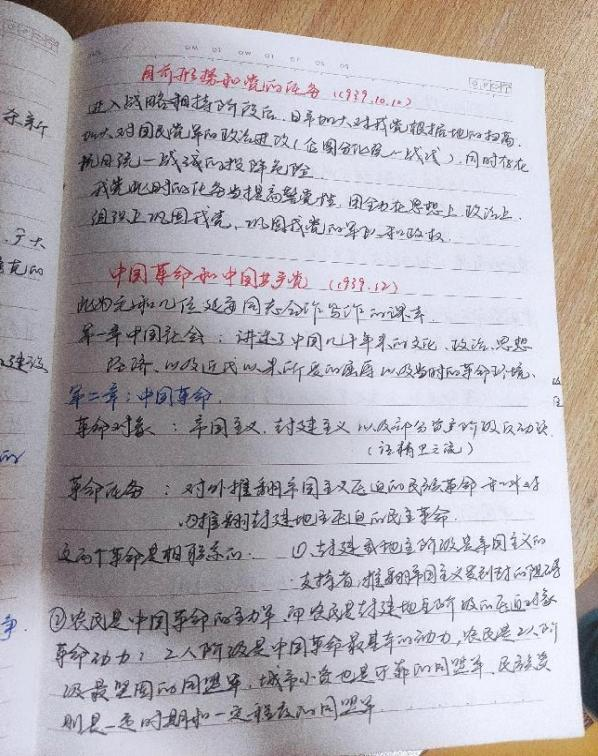 目前形势和党的任务 (1939.10.10)
进入战略相持阶段后，日军加大对我党根据地的扫荡，
加大对国民党军的政治进攻(企图分化统一战线)，同时存在
抗日统一战线的投降危险
我党此时的任务为提高警觉性，团全力在思想上，政治上，
组织上巩固我党、巩固我党的军队和政权
中国革命和中国共产党 (1939.12)
此为毛和几位延安同志合作写作的课本
第一章中国社会：讲述了中国几千年来的文化、政治、思想
经济、以及近代以来所受的屈辱以及当时的革命环境、
第二章：中国革命
革命对象：帝国主义、封建主义以及部分资产阶级反动派
(汪精卫之流)
革命任务：对外推翻帝国主义压迫的民族革命和对
内推翻封建地主压迫的民主革命.
这两个革命是相联系的. ①封建或地主阶级是帝国主义的
支持者，推翻帝国主义受到封的阻碍
②农民是中国革命的主力军，而农民是封建地主阶级的压迫对象
革命动力：工人阶级是中国革命最基本的动力，农民是工人阶
级最坚固的同盟军、城市小资也是可靠的同盟军、民族资
则是一定时期和一定程度的同盟军
杂新
、广大
建设
的
争